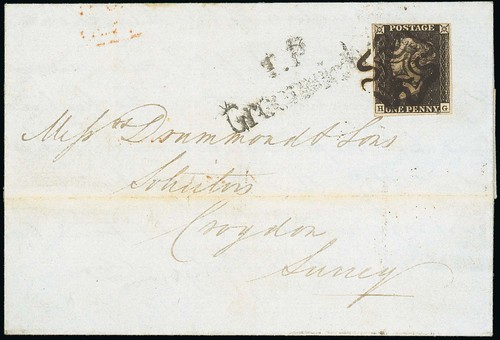 POSTAGE
T.P
H ONE PENNY G
Mess.rs Drummond & Sons
Solicitors
Croydon
Surrey